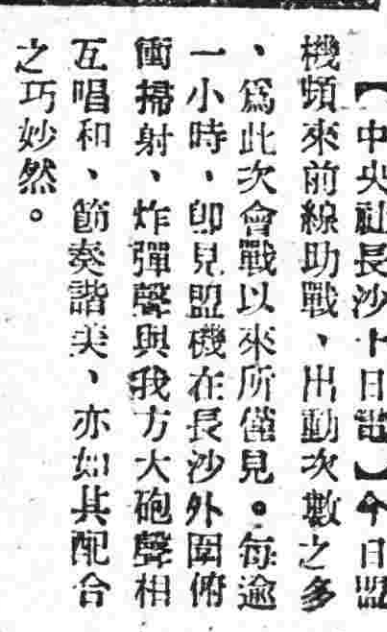 【中央社長沙十日電】今日盟
機頻來前線助戰、出動次數之多
、爲此次會戰以來所僅見。每逾
一小時、卽見盟機在長沙外圍俯
衝掃射、炸彈聲與我方大砲聲相
互唱和、節奏諧美、亦如其配合
之巧妙然。